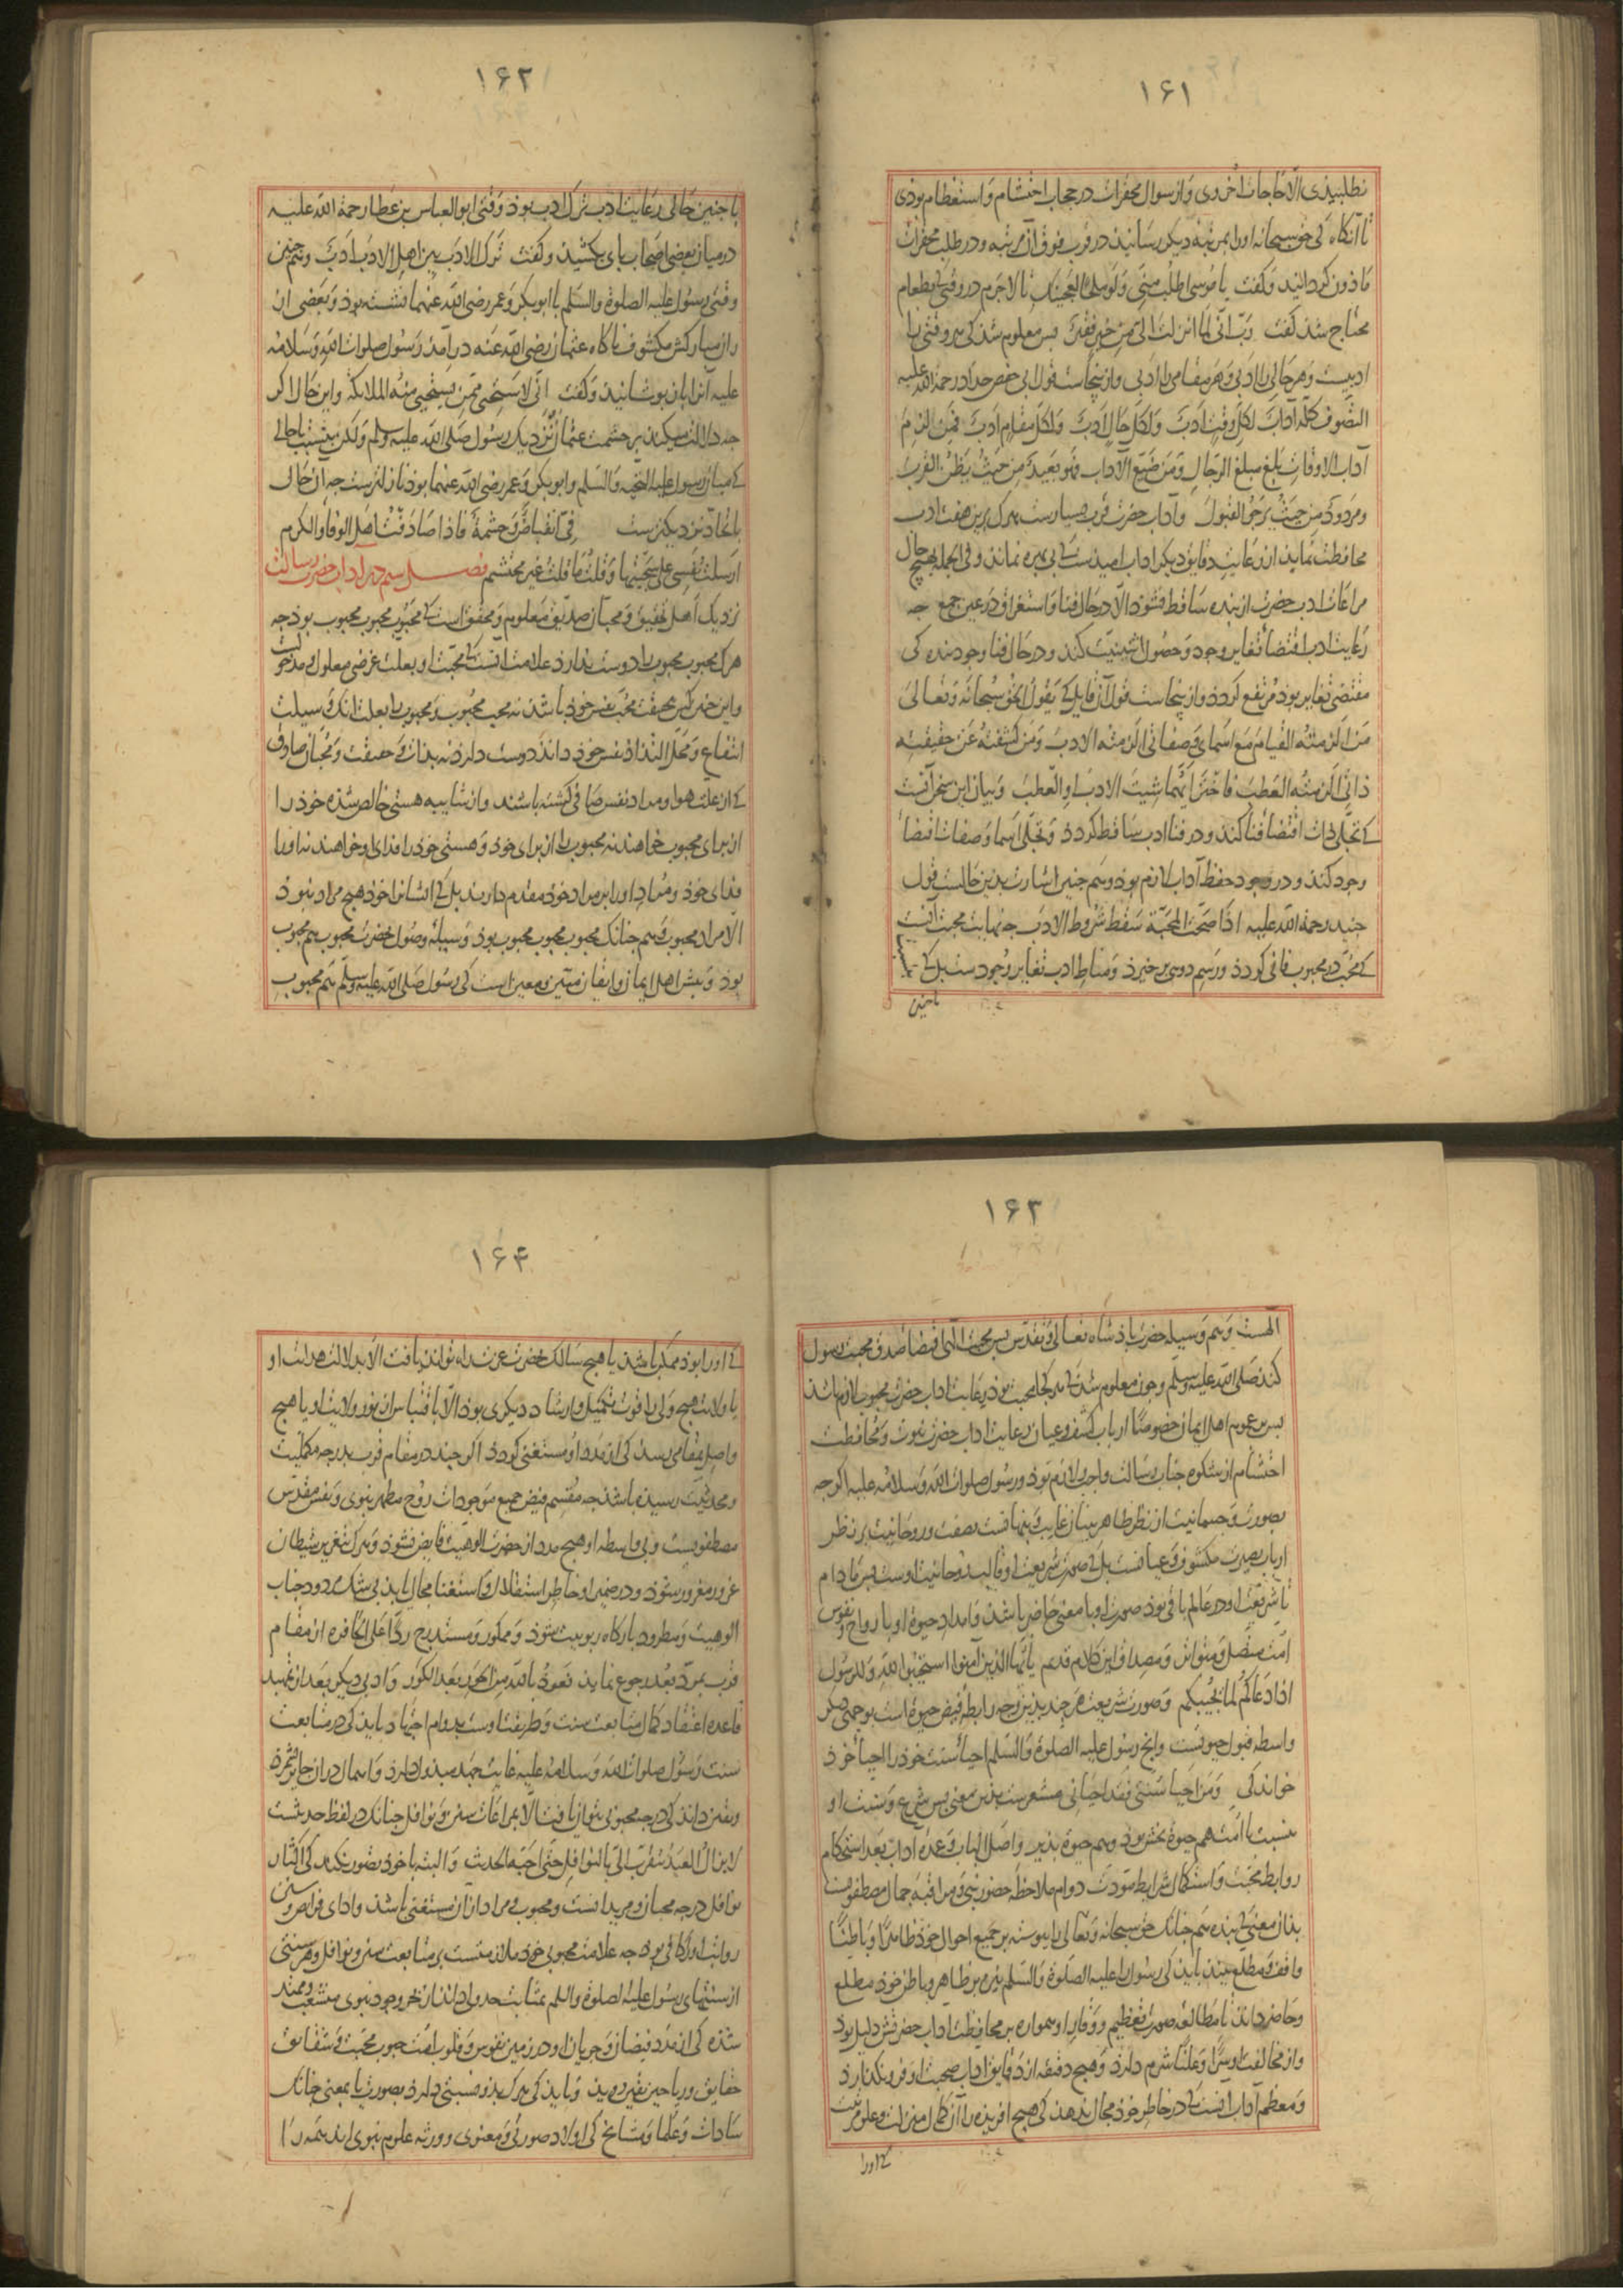 ۱۶۱
نطلبیدی الا حاجات اخروی و از سوال محقرات در حجاب احتشام و استعظام بودی
تا آنکاه کی حق سبحانه او را بمرتبه دیکر رسانید در قرب فوق آن مرتبه و در طلب محقرات
ماذون کردانید و کفت یا موسی اطلب منی و لو ملحا لعجینک تا لاجرم در وقتی کی بطعام
محتاج شد کفت رب انی لما انزلت الی من خیر فقیر بس معلوم شد کی هر وقتی را
ادبیست و هر حالی را ادبی و هر مقامی را ادبی و از ینجاست قول ابی حفص حداد رحمة الله علیه
التصوف کله آداب لکل وقت ادب و لکل حال ادب و لکل مقام ادب فمن لزم
آداب الاوقات بلغ مبلغ الرجال و من ضیع الآداب فهو بعید من حیث یظن القرب
و مردود من حیث یرجو القبول و آداب حضرت قرب بسیارست هرک برین هفت ادب
محافظت نماید از رعایت دقایق دیکر اداب امیدست کی بی بهره نماند و فی الجمله بهیچ حال
مراعات ادب حضرت از بنده ساقط نشود الا در حال فنا و استغراق در عین جمع جه
رعایت ادب اقتضاء تغایر وجود و حصول اثنینیت کند و در حال فنا وجود بنده کی
مقتضی تغایر بود مرتفع کردد و از ینجاست قول آن قایل کی یقول الحق سبحانه و تعالی
من الزمته القیام مع اسمای و صفاتی الزمته الادب و من کشفته عن حقیقة
ذاتی الزمته العطب فاختر ایهما شیت الادب او العطب و بیان این سخن آنست
کی تجلی ذات اقتضاء فنا کند و در فنا ادب ساقط کردد و تجلی اسما و صفات اقتضاء
وجود کند و در وجود حفظ آداب لازم بود و هم جنین اشارت بدین حالست قول
جنید رحمة الله علیه اذا صحت المحبة سقط شروط الادب جه نهایت محبت آنست
کی محب در محبوب فانی کردد و رسم دوی برخیزد و مناط ادب تغایر وجودست بل کی
باجنین
۱۶۲
با جنین حالی رعایت ادب ترک ادب بود وقتی ابو العباس بن عطا رحمة الله علیه
در میان بعضی اصحاب بای بکشید و کفت ترک الادب بین اهل الادب ادب و هم جنین
وقتی رسول علیه الصلوة والسلم با ابوبکر و عمر رضی الله عنهما نشسته بود و بعضی از
ران مبارکش مکشوف ناکاه عثمان رضی الله عنه در آمد رسول صلوات الله و سلامه
علیه آنرا بازبوشانید و کفت انی لاستحیی ممن یستحیی منه الملائکة و این حال اکر
جه دلالت میکند بر حشمت عثمان نزدیک رسول صلی الله علیه وسلم ولکن بنسبت با حالی
کی میان رسول علیه التحیه والسلم و ابوبکر و عمر رضی الله عنهما بود نازلترست جه آن حال
باتحاد نزدیکترست فی انقباض و حشمة فاذا صادفت اهل الوفا والکرم
ارسلت نفسی علی سجیتها و قلت ما قلت غیر محتشم فصل سیم در آداب حضرت رسالت
نزدیک اهل تحقیق و محبان صدیق معلوم و محقق است کی محبوب محبوب محبوب بود جه
هرک محبوب محبوب را دوست ندارد علامت آنست کی محبت او بعلت غرضی معلول و مدخولست
و این جنین کس بحقیقت محب نفس خود باشد نه محب محبوب و محبوب را بعلت آنک وسیلت
انتفاع و محل التذاذ نفس خود داند دوست دارد نه بذات و حقیقت و محبان صادق
کی از علت هوا و مراد نفس صافی کشته باشند و از شایبه هستی خالص شده خود را
از برای محبوب خواهند نه محبوب را از برای خود و هستی خود را فدای او خواهند نه او را
فدای خود و مراد او را بر مراد خود مقدم دارند بل کی ایشانرا خود هیچ مراد نبود
الا مراد محبوب و هم جنانک محبوب محبوب محبوب بود وسیله وصول حضرت محبوب هم محبوب
بود و بیش اهل ایمان و ایقان مبین و معین است کی رسول صلی الله علیه وسلم هم محبوب
۱۶۳
الهست و هم وسیله حضرت باذشاه تعالی و تقدس بس محبت الهی اقتضاء صدق محبت رسول
کند صلی الله علیه وسلم و جون معلوم شد کی هر کجا محبت بود رعایت اداب حضرت محبوب لازم باشد
بس بر عموم اهل ایمان خصوصا ارباب کشف و عیان رعایت اداب حضرت نبوت و محافظت
احتشام از شکوه جناب رسالت واجب و لازم بود و رسول صلوات الله و سلامه علیه اکرجه
بصورت و جسمانیت از نظر ظاهربینان غایب و بنهانست بصفت و روحانیت بر نظر
ارباب بصیرت مکشوف و عیانست بل کی صورت شریعت او قالب روحانیت اوست بس ما دام
تا شریعت او در عالم باقی بود صورت او با معنی حاضر باشد و امداد حیوة او با رواح و نفوس
امت متصل و متواتر و مصداق این کلام قدیم یا ایها الذین آمنوا استجیبوا لله وللرسول
اذا دعاکم لما یحییکم و صورت شریعت هر جند بدین وجه رابطه فیض حیوة است بوجهی دیکر
واسطه قبول حیوتست و انج رسول علیه الصلوة والسلم احیاء سنت خود را احیاء خود
خواند کی و من احیا سنتی فقد احیانی مشعرست بدین معنی بس شرع و سنت او
بنسبت با امت هم حیوة بخش بود و هم حیوة بذیر و اصل الباب و عمده آداب بعد استحکام
روابط محبت و استکمال شرایط مودت دوام ملاحظه حضور نبی و مراقبه جمال مصطفویست
بدان معنی کی بنده هم جنانک حق سبحانه و تعالی را بیوسته بر جمیع احوال خود ظاهرا و باطنا
واقف و مطلع بیند باید کی رسول را علیه الصلوة والسلم نیز بر ظاهر و باطن خود مطلع
و حاضر داند تا مطالعه صورت تعظیم و وقار او همواره بر محافظت اداب حضرتش دلیل بود
و از مخالفت او سرا و علنا شرم دارد و هیچ دقیقه از دقایق اداب صحبت او فرو نکذارد
و معظم آداب آنست کی در خاطر خود مجال ندهد کی هیچ افریده را آن کمال منزلت و علو مرتبت
کی او را
۱۶۴
کی او را بود ممکن باشد یا هیچ سالک بحضرت عزت راه تواند یافت الا بدلالت هدایت او
یا ولایت هیچ ولی را قوت تکمیل و ارشاد دیکری بود الا باقتباس از نور ولایت او یا هیچ
واصل بمقامی رسد کی از مدد او مستغنی کردد اکرجند در مقام قرب بدرجه مکلمیت
و محدثیت رسیده باشد جه مقسم فیض جمیع موجودات روح مطهر نبوی و نفس مقدس
مصطفویست و بی واسطه او هیچ مدد از حضرت الوهیت فایض نشود و هرک بتغریر شیطان
غرور مغرور شود و در ضمیر او خاطر استقلال و استغنا مجال یابد بی شک مردود جناب
الوهیت و مطرود بارکاه ربوبیت شود و ممکور و مستدرج ردا علی الحافره از مقام
قرب بمرد بعد رجوع نماید نعوذ بالله من الحور بعد الکور و ادبی دیکر بعد از تمهید
قاعده اعتقاد کمال متابعت سنت و طریقت اوست بدوام اجتهاد باید کی در متابعت
سنت رسول صلوات الله و سلامه علیه غایت جهد مبذول دارد و اهمال در ان جایز نشمرد
و یقین داند کی درجه محبوبی نتوان یافت الا بمراعات سنن و نوافل جنانک در لفظ حدیثست
لا یزال العبد یتقرب الی بالنوافل حتی احبه الحدیث و البته با خود تصور نکند کی اکثار
نوافل درجه محبان و مریدانست و محبوب و مراد از آن مستغنی باشد و ادای فرایض و سنن
رواتب او را کافی بود جه علامت محبوبی خود ملازمتست بر متابعت سنن و نوافل و هر سنتی
از سنتهای رسول علیه الصلوة والسلم بمثابت جدولی داند از بحر وجود نبوی منشعب و ممتد
شده کی از مدد فیضان و جریان او در زمین نفوس و قلوب امت حبوب محبت و شقایق
حقایق و ریاحین یقین دمید و باید کی هرک بدو نسبتی دارد بصورت یا بمعنی جنانک
سادات و علما و مشایخ کی اولاد صوری و معنوی و ورثه علوم نبوی اند همه را